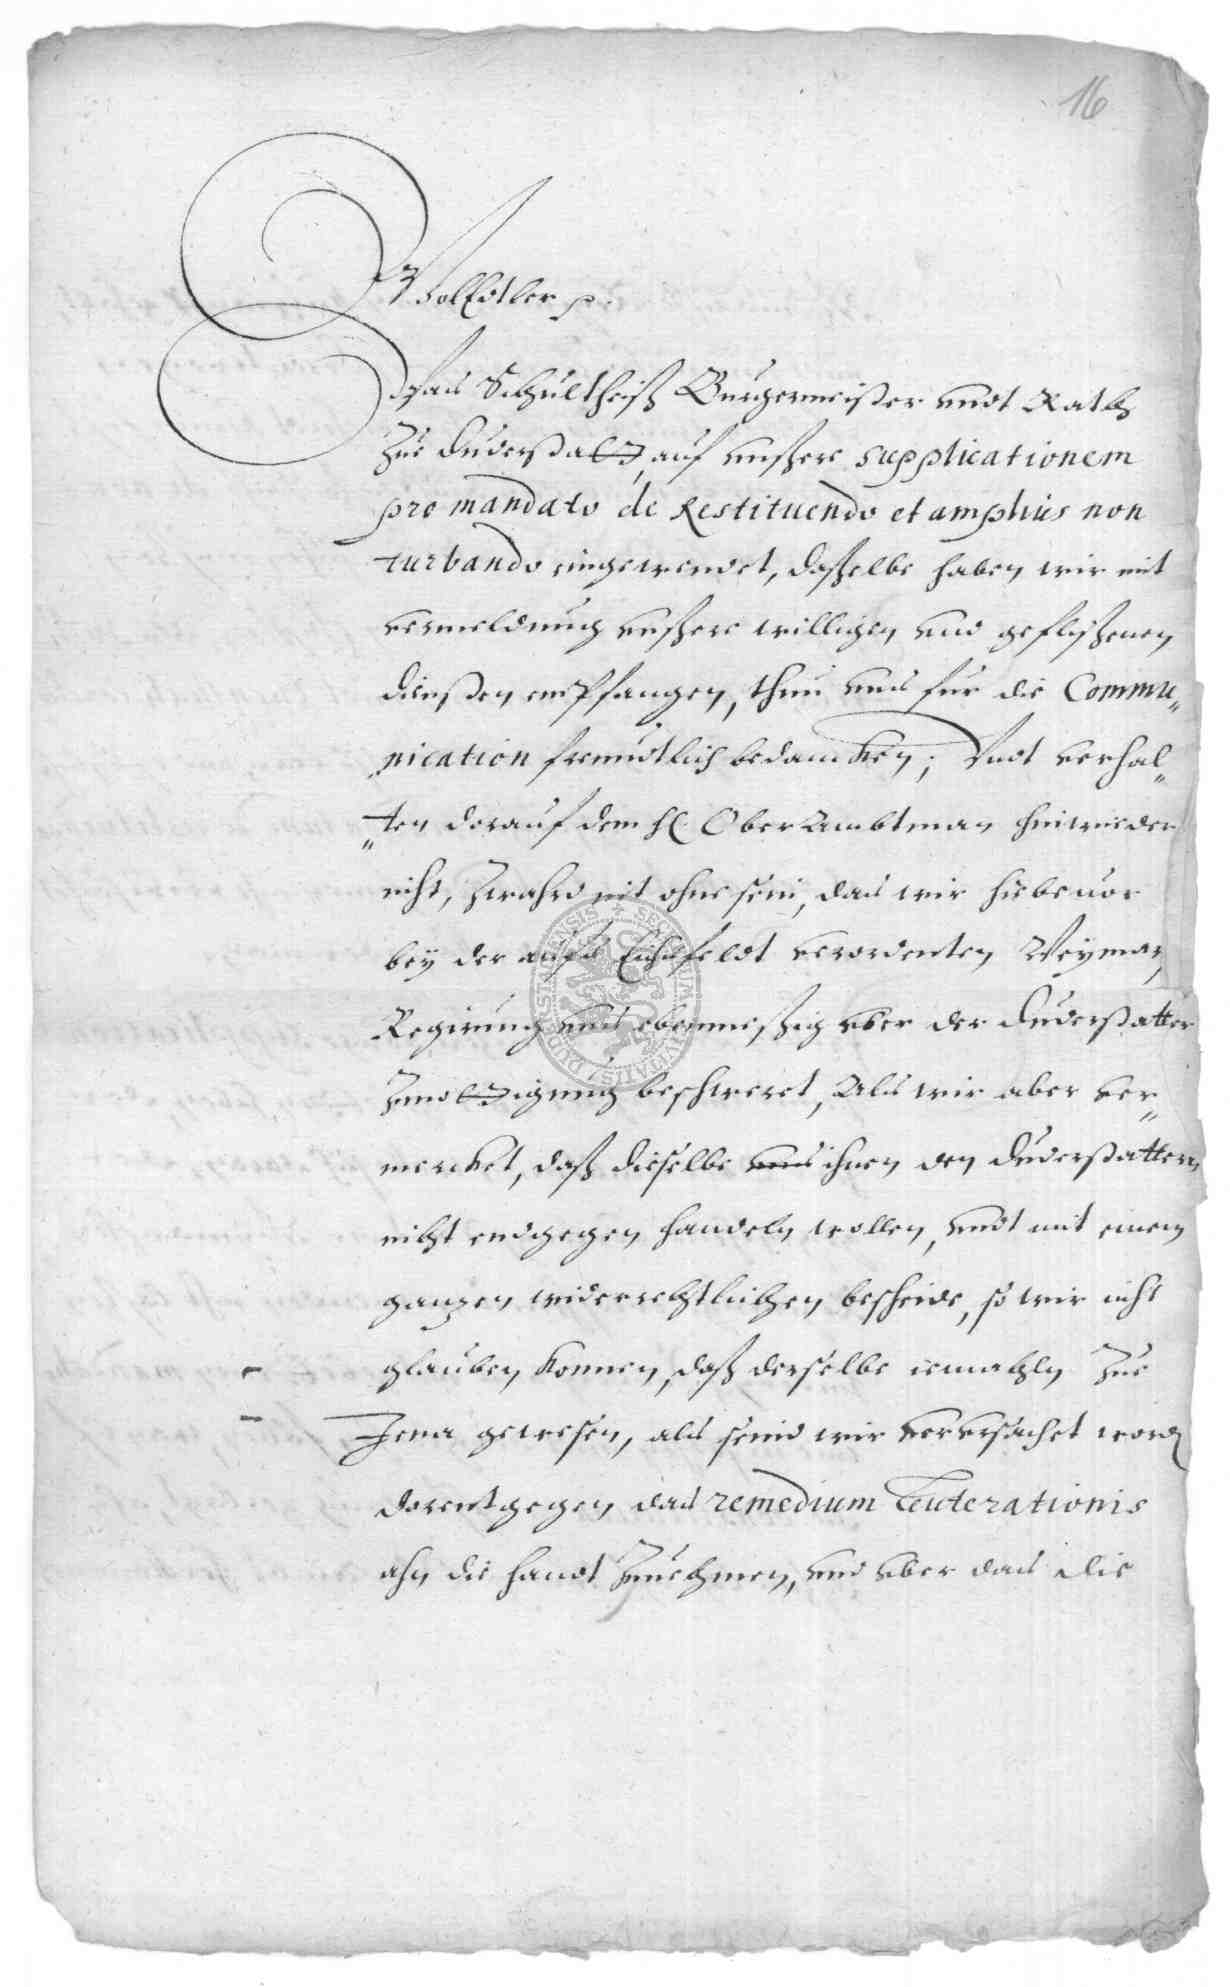 16
WolEdtler p.
Was Schultheiß Burgermeister undt Rath
Zue Duderstadt, auf unßere supplicationem
pro mandato de Restituendo et amplius non
turbando eingewendet, daßelbe haben wir mit
vermeldung unßere willigen und geflißenen
diensten empfangen, thun uns fur die Commu„
nication freundtlich bedancken; Undt verhal„
„ten darauf dem H. OberAmbtman hinwieder
nicht, Zwahrd nit ohne sein, das wir hiebevor
bey der aufs Eichsfeldt verordenten Weymar,
Regirung uns ebenmeßig uber der Duderstatter
Zunodtigung beschweret, Als wir aber ver„
mercket, daß dieselbe uns ihnen den Duderstattern
nicht endgegen handeln wollen, undt mit einem
ganzen widerrechtlichen bescheide, so wir nicht
glauben konnen, daß derselbe iemahln Zue
Jena gewesen, als seind wir verursachet word
darentgegen das remedium Leuterationis
ahn die handt Zunehmen, und uber das die
SECRETUM CIVITATIS DUDERSTADENSIS